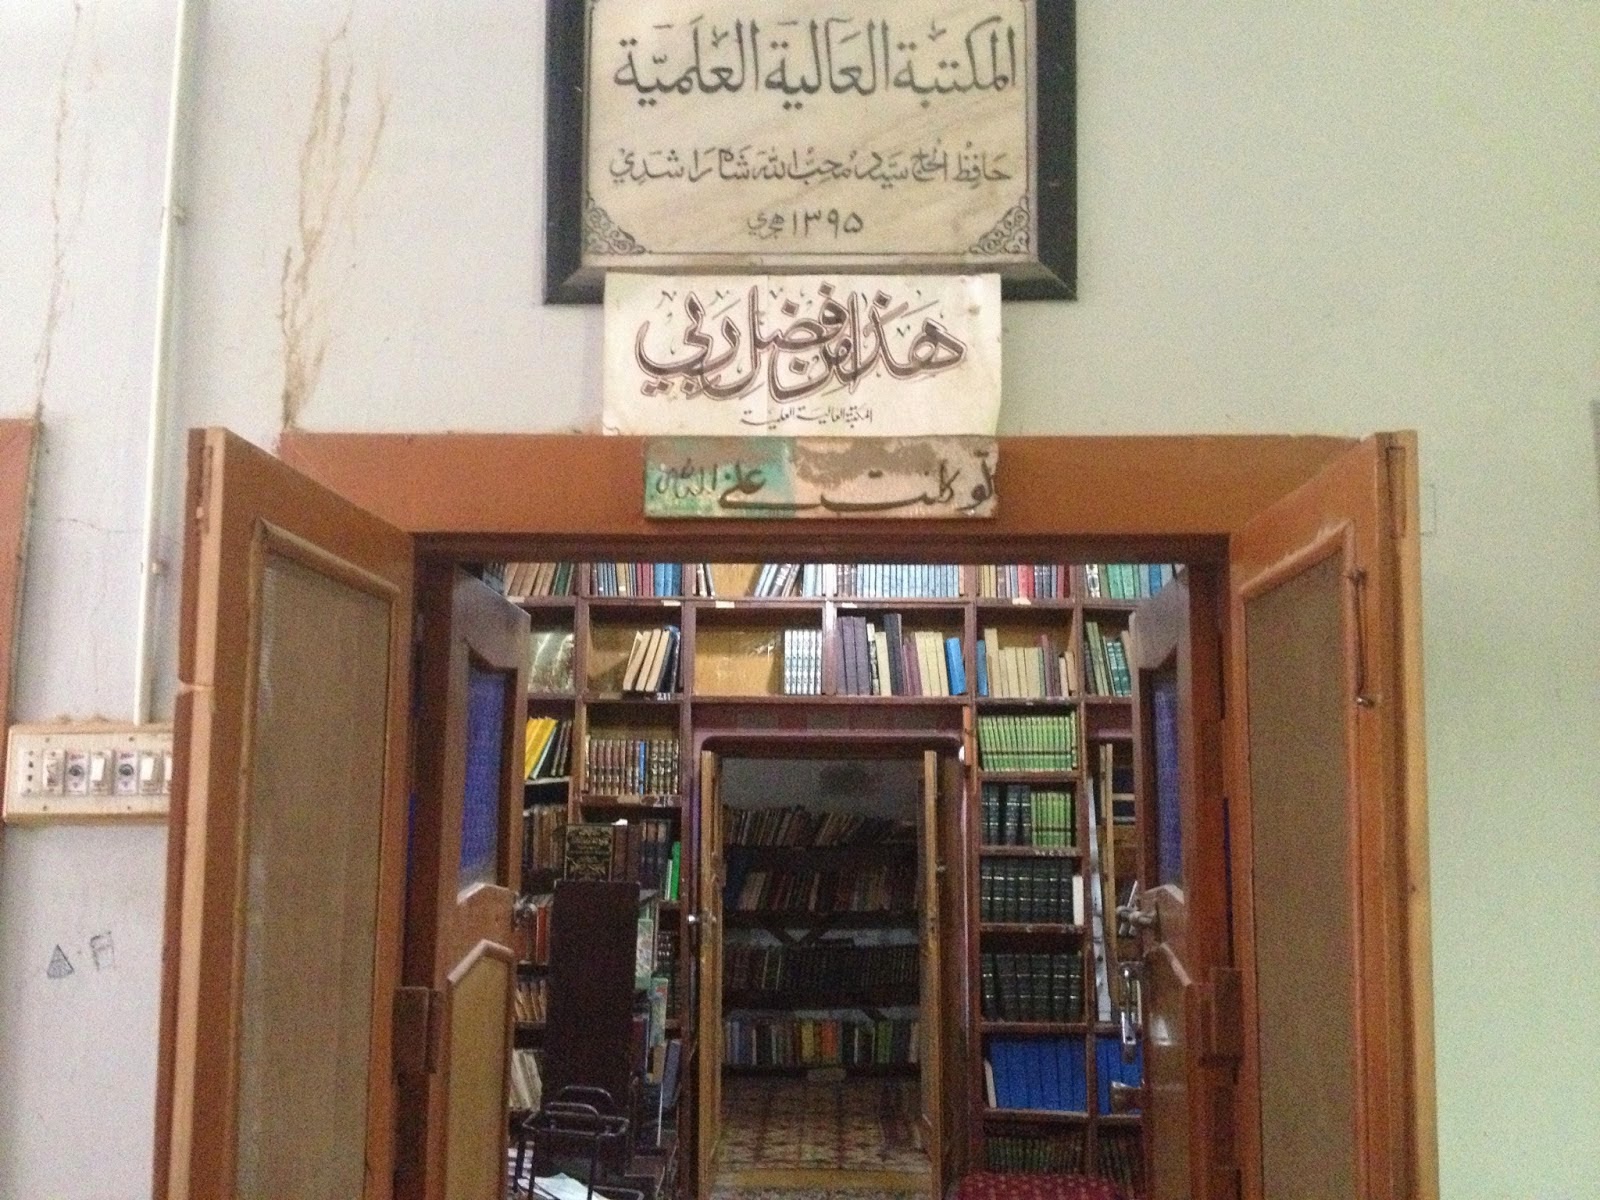 المكتبة العالية العلمية
حافظ الحاج سيد محب الله شاه راشدي
١٣٩٥ هجري
هذا من فضل ربي
المكتبة العالية العلمية
توكلت على الله